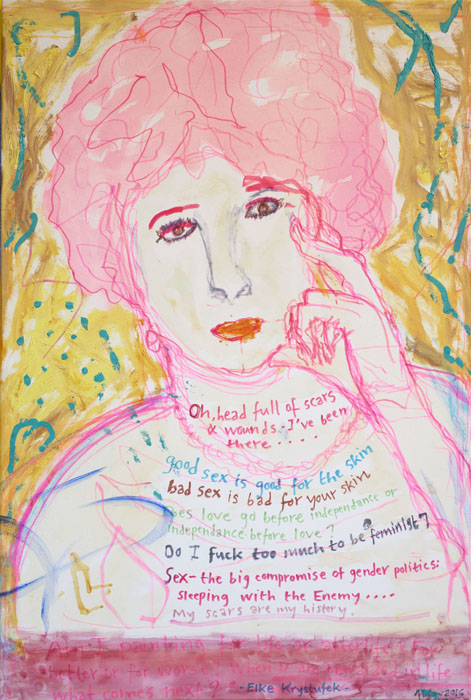 Oh, head full of scars
& wounds - I've been
there.....
good sex is good for the skin
bad sex is bad for your skin
Does love go before independance or
independance before love?
Do I fuck too much to be feminist?
Sex - the big compromise of gender politics:
sleeping with the Enemy....
My scars are my history.
Am I painting for life or afterlife? For
better or for worse? When life
what comes next?
- Elke Krystufek -
2016